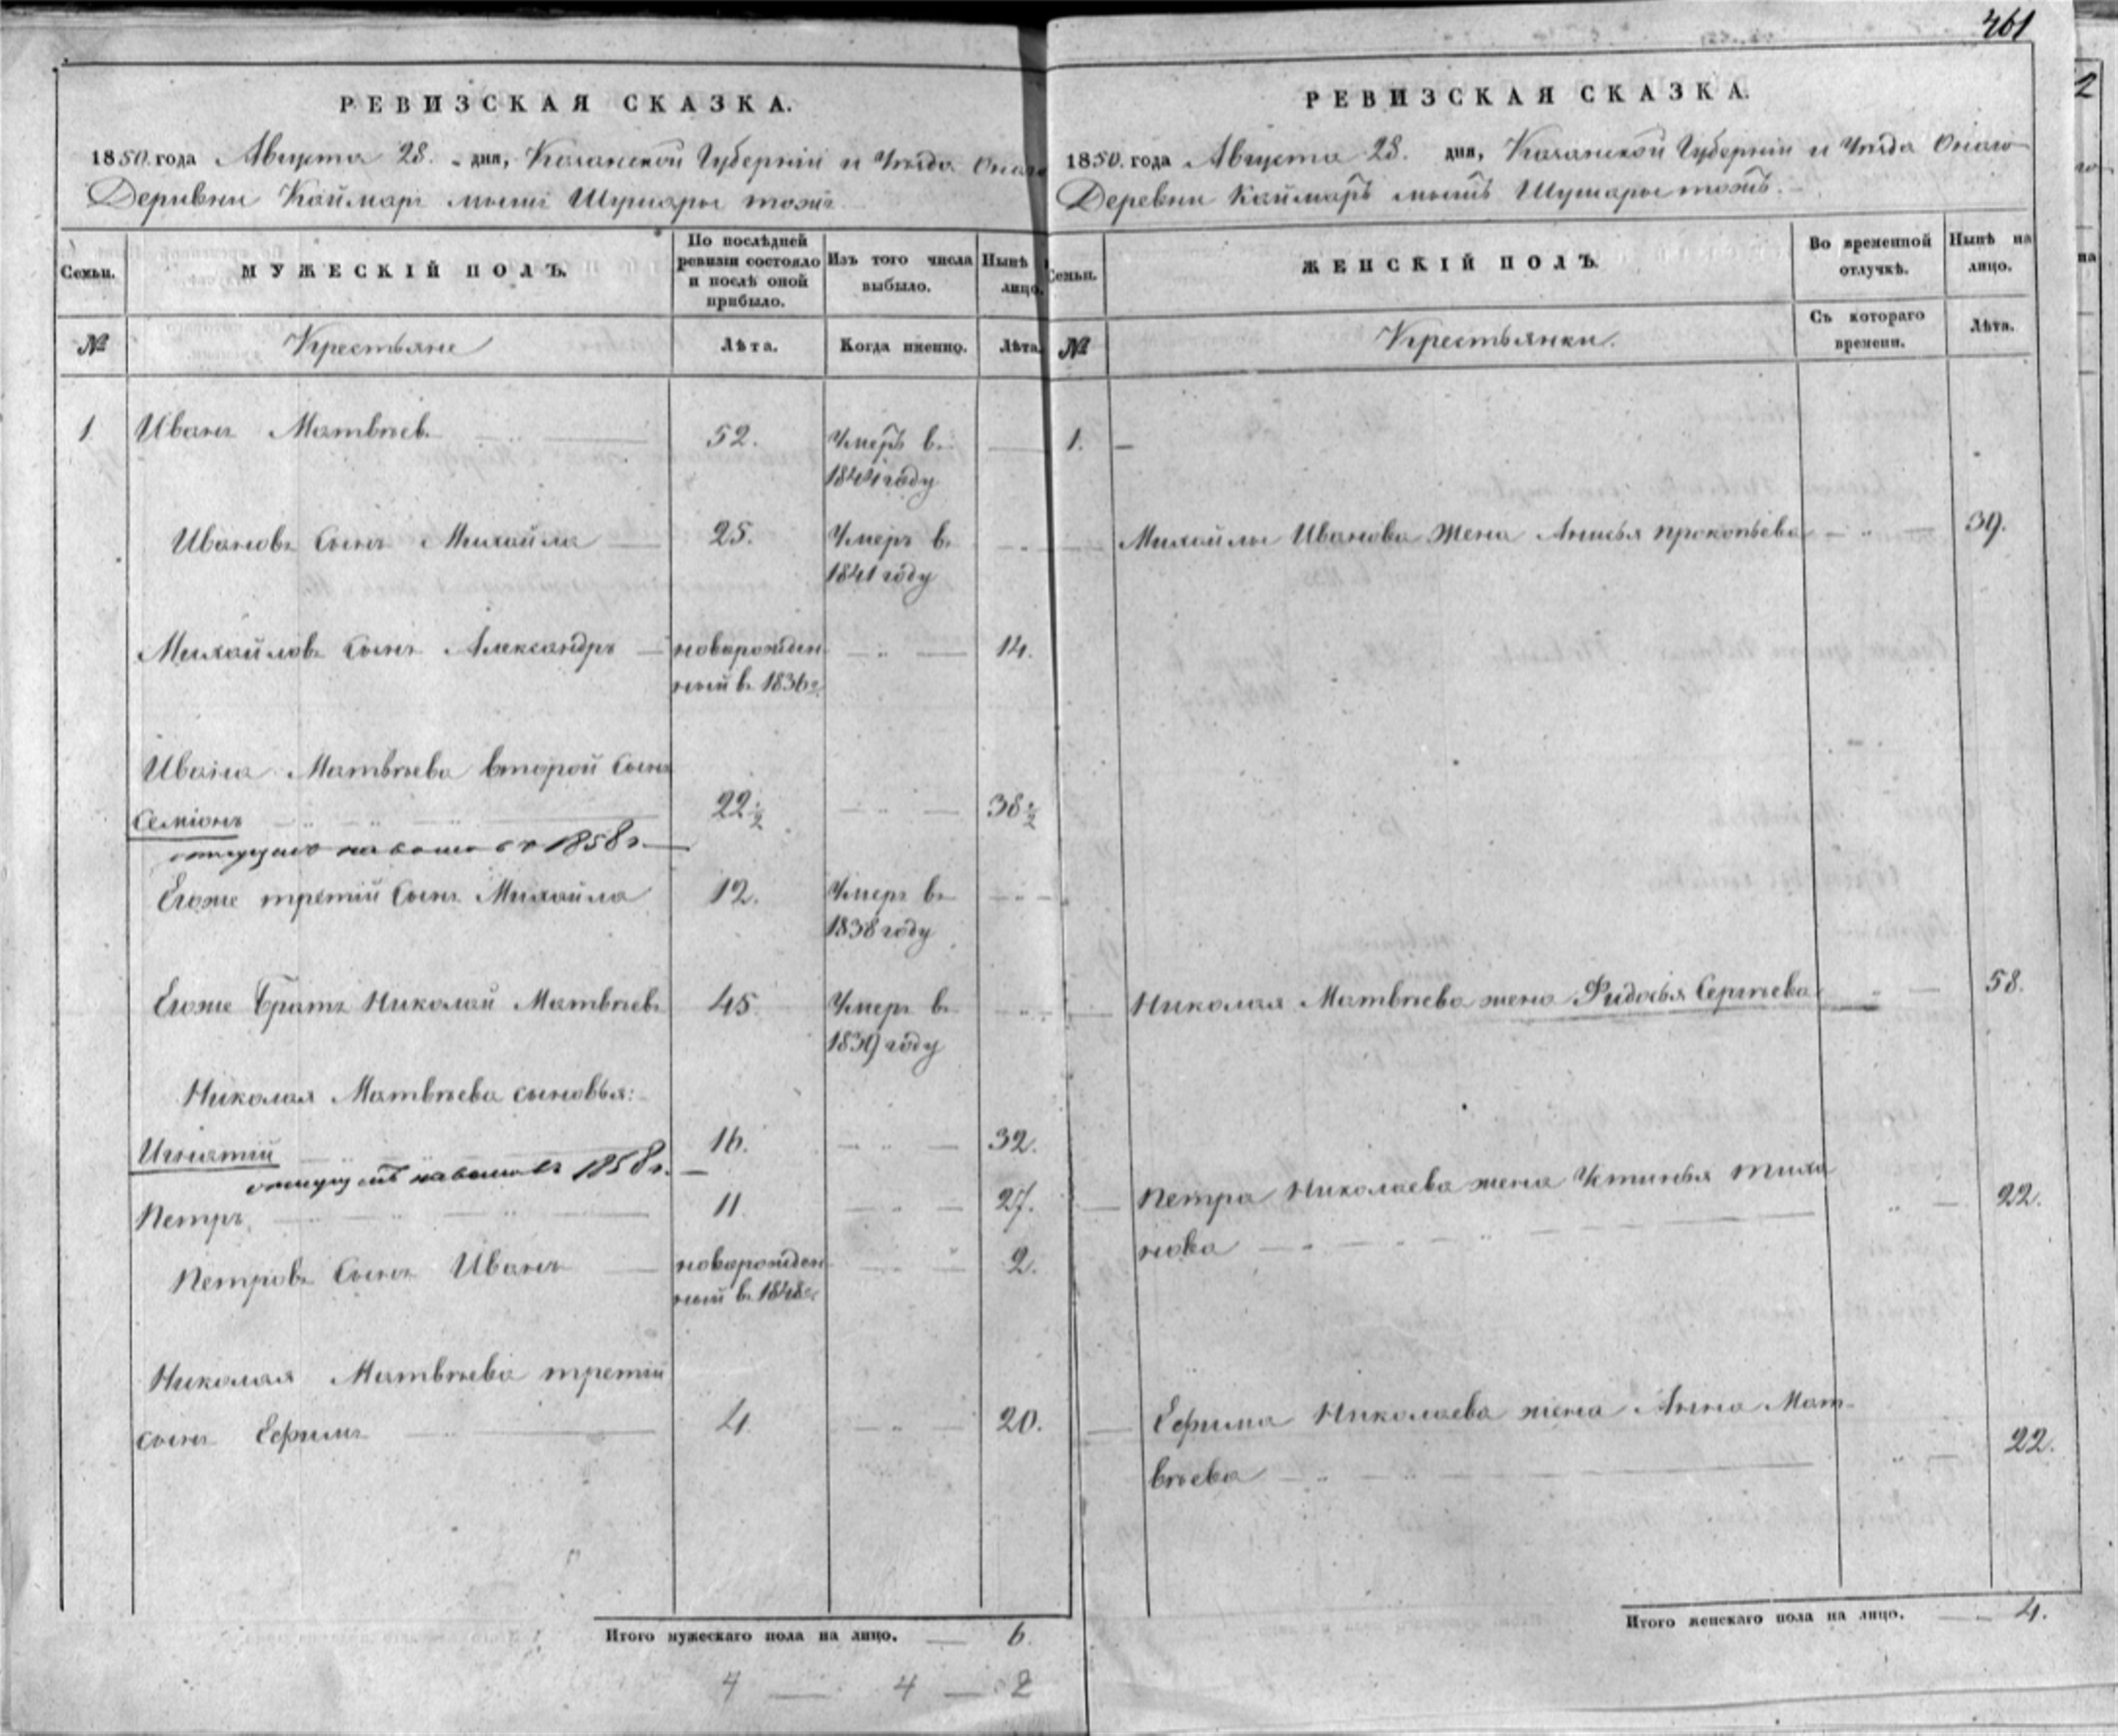 461
РЕВИЗСКАЯ СКАЗКА.
1850. года Августа 28. дня, Казанской Губерніи и Уѣзда Онаго
Деревни Каймаръ мытъ Шушары тожъ
Семьи.
МУЖЕСКІЙ ПОЛЪ.
По послѣдней ревизіи состояло и послѣ оной прибыло.
Изъ того числа выбыло.
Нынѣ лицо.
№
Крестьяне
Лѣта.
Когда именно.
Лѣта.
1 Иванъ Матвѣев. 52. Умеръ въ
1844 году
Ивановъ сынъ Михайла 25. Умеръ въ
1841 году
Михайловъ сынъ Александръ новорожден 14.
ный в. 1836 г.
Ивана Матвѣева второй сынъ
Семіонъ 22 ½ 38 ½
отпущенъ на волю въ 1858 г.
Егоже третій сынъ Михайла 12. Умеръ въ
1838 году
Егоже братъ Николай Матвѣевъ 45 Умеръ въ
1839 году
Николая Матвѣева сыновья:
Игнатій 16. 32.
отпущенъ на волю въ 1858 г.
Петръ 11. 27.
Петровъ сынъ Иванъ новорожден 2.
ный в. 1848 г.
Николая Матвѣева третій
сынъ Ефимъ 4 20.
Итого мужескаго пола на лицо. 6
4 4 2
РЕВИЗСКАЯ СКАЗКА.
1850. года Августа 28. дня, Казанской Губерніи и Уѣзда Онаго
Деревни Каймаръ мытъ Шушары тожъ.
Семьи.
ЖЕНСКІЙ ПОЛЪ.
Во временной отлучкѣ.
Нынѣ на лицо.
№
Крестьянки.
Съ котораго времени.
Лѣта.
1. —
Михайлы Иванова жена Анисья Прокопьева 39.
Николая Матвѣева жена Фидосья Сергѣева 58.
Петра Николаева жена Устинья Тихо
нова 22.
Ефима Николаева жена Анна Мат-
вѣева 22.
Итого женскаго пола на лицо. 4.
2